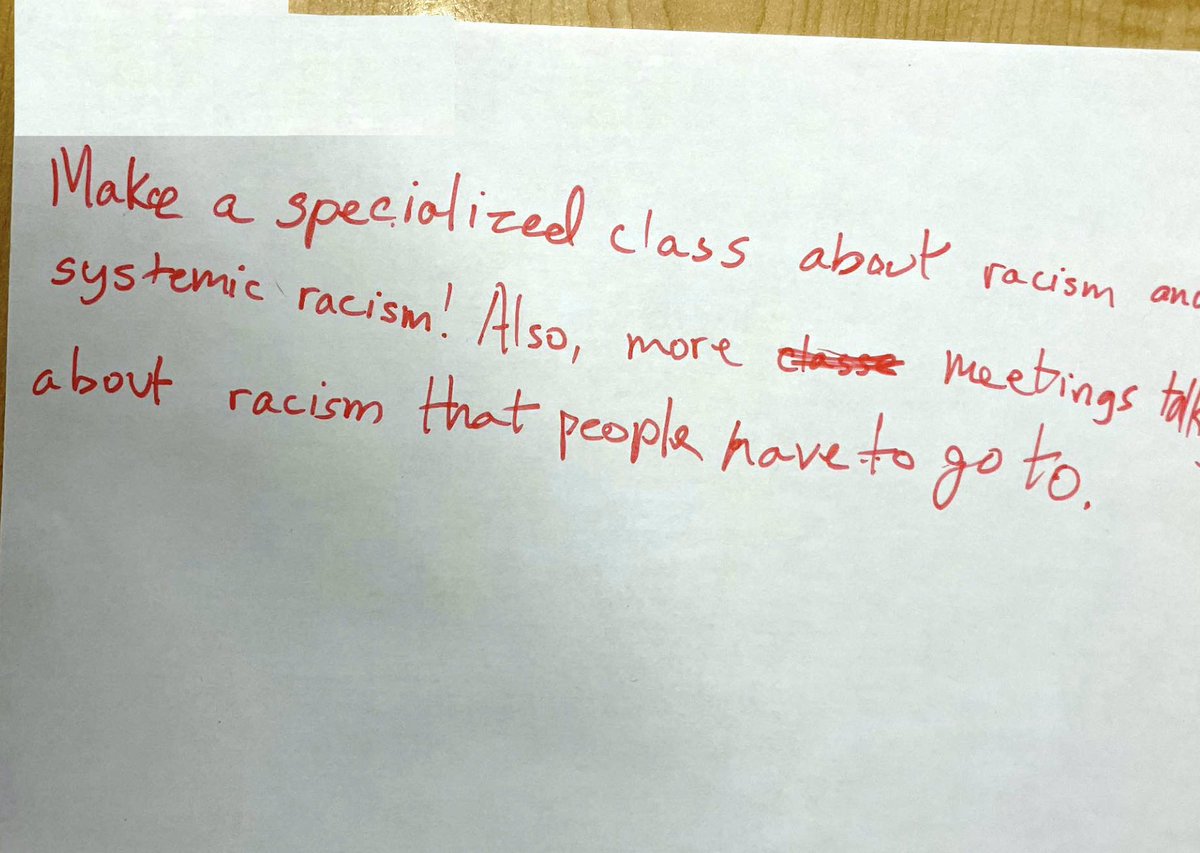 Make a specialized class about racism and
systemic racism! Also, more classe meetings talk
about racism that people have to go to.